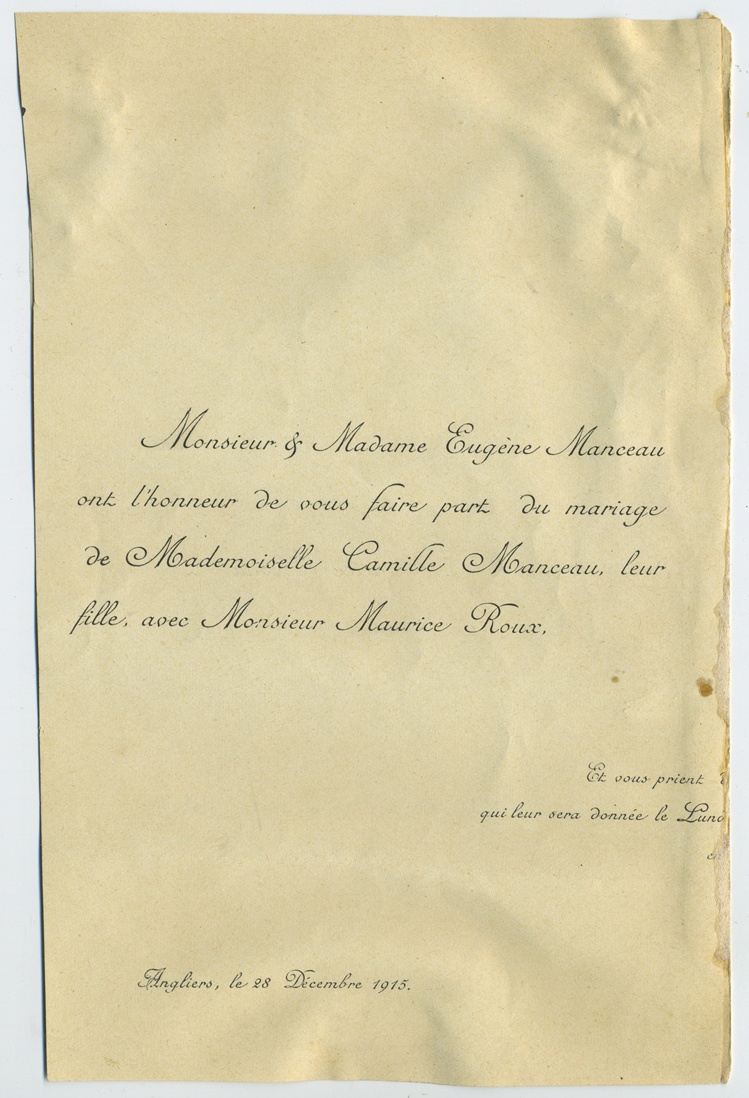 Monsieur & Madame Eugène Manceau
ont l'honneur de vous faire part du mariage
de Mademoiselle Camille Manceau, leur
fille, avec Monsieur Maurice Roux,
Et vous prient
qui leur sera donnée le
Angliers, le 28 Décembre 1915.